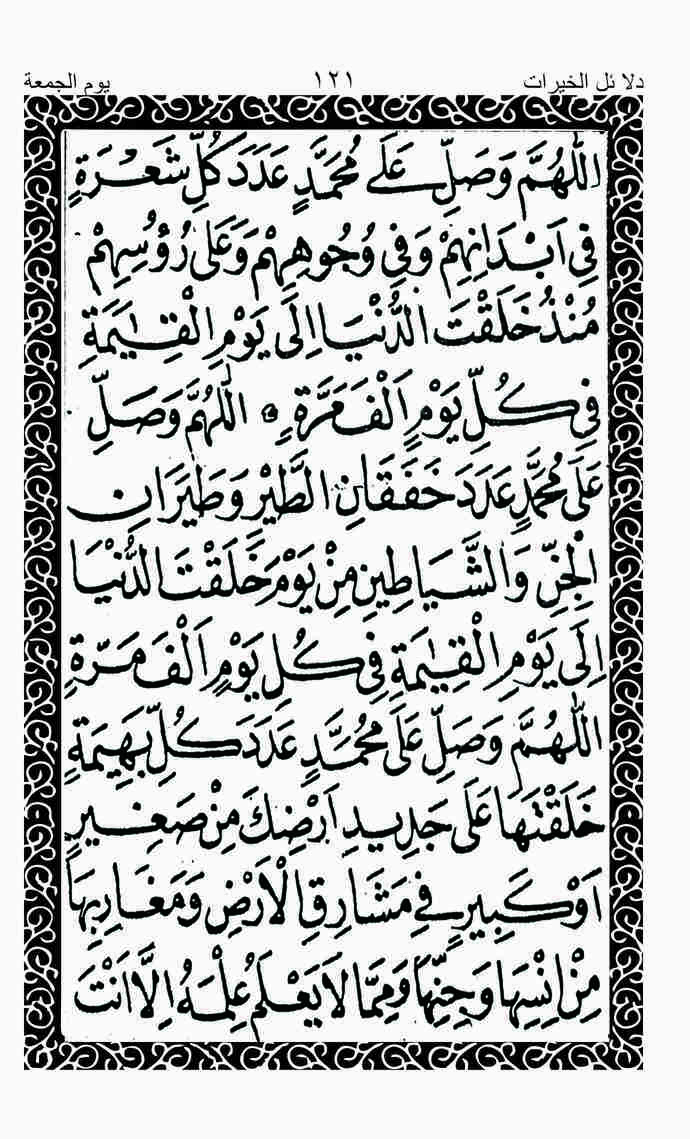 دلائل الخيرات ١٢١ يوم الجمعة
اَللّٰهُمَّ وَصَلِّ عَلَى مُحَمَّدٍ عَدَدَ كُلِّ شَعْرَةٍ
فِي اَبْدَانِهِمْ وَفِي وُجُوهِهِمْ وَعَلَى رُؤُسِهِمْ
مُنْذُ خَلَقْتَ الدُّنْيَا اِلَى يَوْمِ الْقِيٰمَةِ
فِي كُلِّ يَوْمٍ اَلْفَ مَرَّةٍ ۞ اَللّٰهُمَّ وَصَلِّ
عَلَى مُحَمَّدٍ عَدَدَ خَفَقَانِ الطَّيْرِ وَطَيَرَانِ
الْجِنِّ وَالشَّيَاطِينِ مِنْ يَوْمَ خَلَقْتَ الدُّنْيَا
اِلَى يَوْمِ الْقِيٰمَةِ فِي كُلِّ يَوْمٍ اَلْفَ مَرَّةٍ
اَللّٰهُمَّ وَصَلِّ عَلَى مُحَمَّدٍ عَدَدَ كُلِّ بَهِيمَةٍ
خَلَقْتَهَا عَلَى جَدِيدِ اَرْضِكَ مِنْ صَغِيرٍ
اَوْ كَبِيرٍ فِي مَشَارِقِ الْاَرْضِ وَمَغَارِبِهَا
مِنْ اِنْسِهَا وَجِنِّهَا وَمِمَّا لَا يَعْلَمُ عِلْمَهُ اِلَّا اَنْتَ